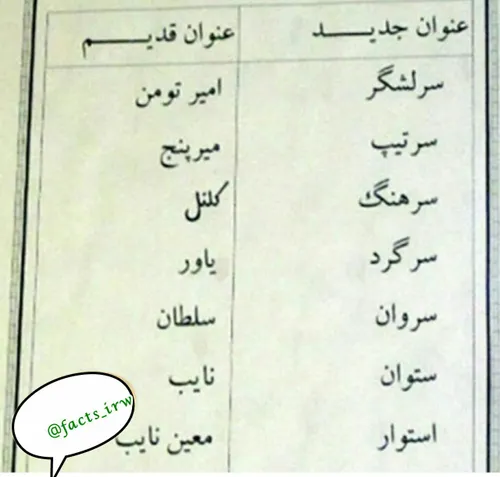 عنوان جدیــــد عنوان قدیــــم
سرلشگر امیر تومن
سرتیپ میرپنج
سرهنگ کلنل
سرگرد یاور
سروان سلطان
ستوان نایب
استوار معین نایب
@facts_irw